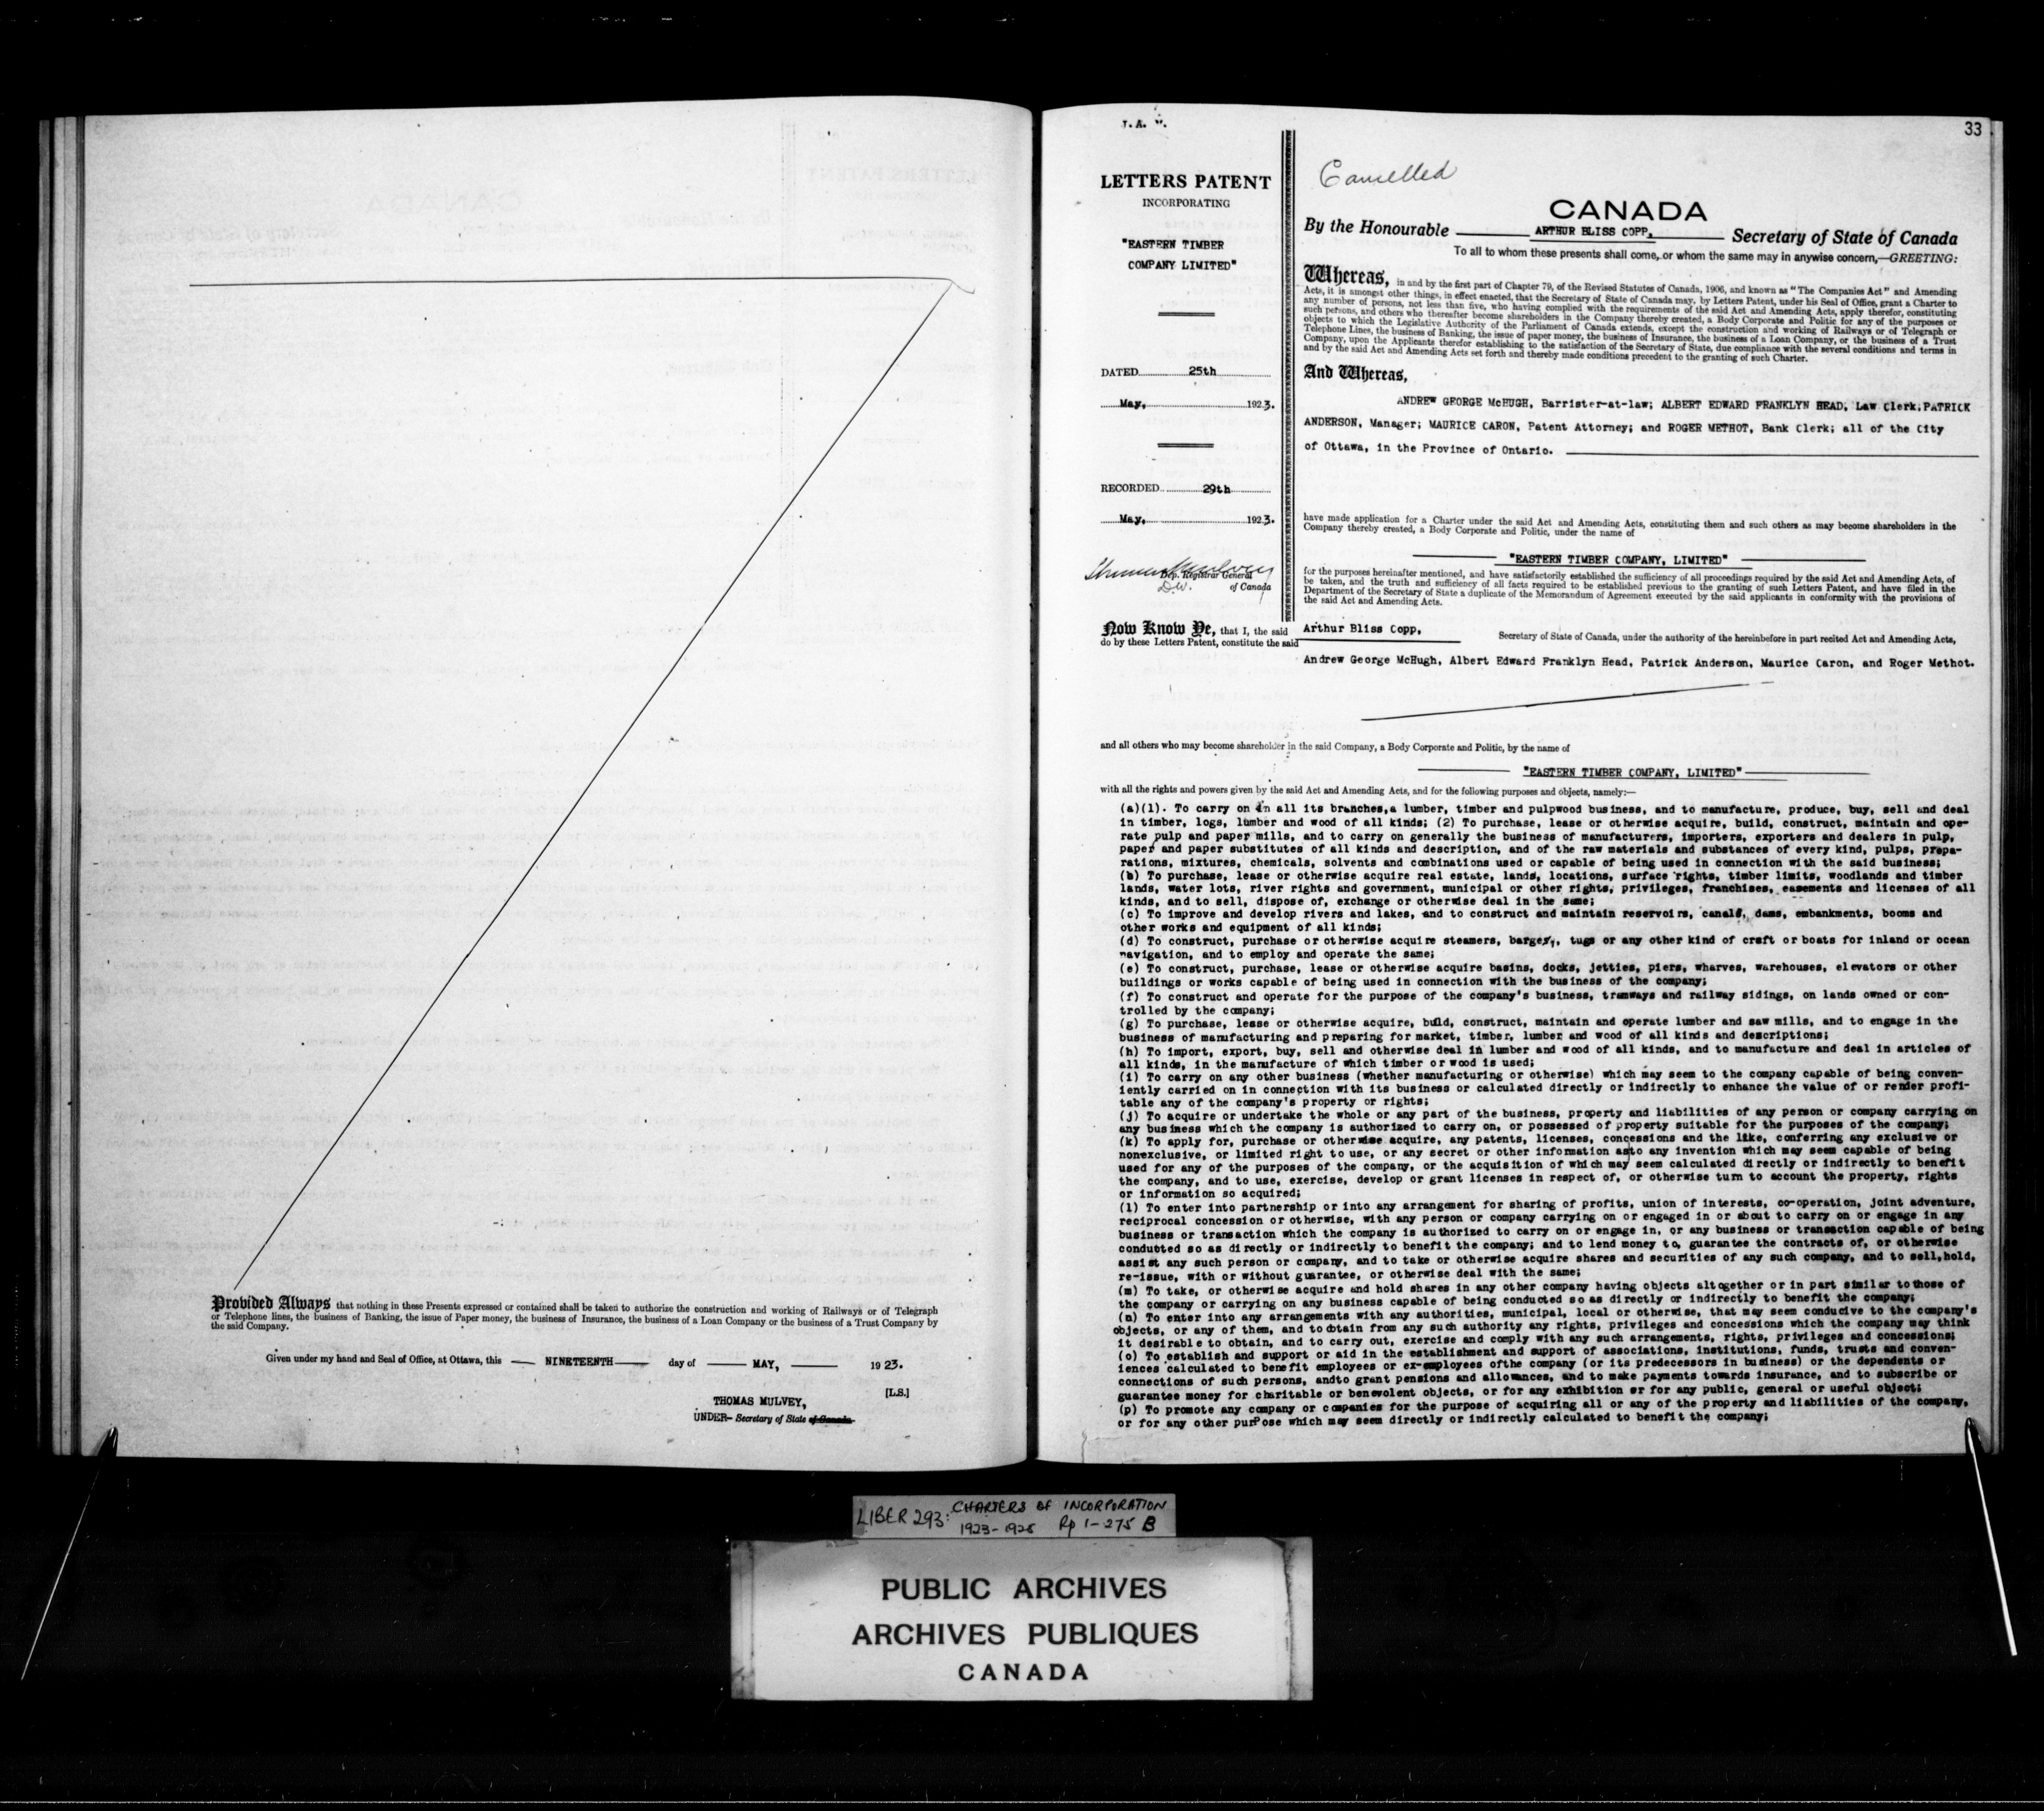 Provided Always that nothing in these Presents expressed or contained shall be taken to authorize the construction and working of Railways or of Telegraph
or Telephone lines, the business of Banking, the issue of Paper money, the business of Insurance, the business of a Loan Company or the business of a Trust Company by
the said Company.
Given under my hand and Seal of Office, at Ottawa, this NINETEENTH day of MAY, 1923.
[L.S.]
THOMAS MULVEY,
UNDER- Secretary of State of Canada
33
LETTERS PATENT
INCORPORATING
"EASTERN TIMBER
COMPANY LIMITED"
DATED 25th
May, 1923.
RECORDED 29th
May, 1923.
Dep. Registrar General
D.W. of Canada
Cancelled
CANADA
By the Honourable ARTHUR BLISS COPP, Secretary of State of Canada
To all to whom these presents shall come, or whom the same may in anywise concern,—GREETING:
Whereas, in and by the first part of Chapter 79, of the Revised Statutes of Canada, 1906, and known as "The Companies Act" and Amending
Acts, it is amongst other things, in effect enacted, that the Secretary of State of Canada may, by Letters Patent, under his Seal of Office, grant a Charter to
any number of persons, not less than five, who having complied with the requirements of the said Act and Amending Acts, apply therefor, constituting
such persons, and others who thereafter become shareholders in the Company thereby created, a Body Corporate and Politic for any of the purposes or
objects to which the Legislative Authority of the Parliament of Canada extends, except the construction and working of Railways or of Telegraph or
Telephone Lines, the business of Banking, the issue of paper money, the business of Insurance, the business of a Loan Company, or the business of a Trust
Company, upon the Applicants therefor establishing to the satisfaction of the Secretary of State, due compliance with the several conditions and terms in
and by the said Act and Amending Acts set forth and thereby made conditions precedent to the granting of such Charter.
And Whereas,
ANDREW GEORGE McHUGH, Barrister-at-law; ALBERT EDWARD FRANKLYN HEAD, Law Clerk; PATRICK
ANDERSON, Manager; MAURICE CARON, Patent Attorney; and ROGER METHOT, Bank Clerk; all of the City
of Ottawa, in the Province of Ontario.
have made application for a Charter under the said Act and Amending Acts, constituting them and such others as may become shareholders in the
Company thereby created, a Body Corporate and Politic, under the name of
"EASTERN TIMBER COMPANY, LIMITED"
for the purposes hereinafter mentioned, and have satisfactorily established the sufficiency of all proceedings required by the said Act and Amending Acts, of
be taken, and the truth and sufficiency of all facts required to be established previous to the granting of such Letters Patent, and have filed in the
Department of the Secretary of State a duplicate of the Memorandum of Agreement executed by the said applicants in conformity with the provisions of
the said Act and Amending Acts.
Now Know Ye, that I, the said Arthur Bliss Copp, Secretary of State of Canada, under the authority of the hereinbefore in part recited Act and Amending Acts,
do by these Letters Patent, constitute the said
Andrew George McHugh, Albert Edward Franklyn Head, Patrick Anderson, Maurice Caron, and Roger Methot.
and all others who may become shareholder in the said Company, a Body Corporate and Politic, by the name of
"EASTERN TIMBER COMPANY, LIMITED"
with all the rights and powers given by the said Act and Amending Acts, and for the following purposes and objects, namely:—
(a)(1). To carry on in all its branches,a lumber, timber and pulpwood business, and to manufacture, produce, buy, sell and deal
in timber, logs, lumber and wood of all kinds; (2) To purchase, lease or otherwise acquire, build, construct, maintain and ope-
rate pulp and paper mills, and to carry on generally the business of manufacturers, importers, exporters and dealers in pulp,
paper and paper substitutes of all kinds and description, and of the raw materials and substances of every kind, pulps, prepa-
rations, mixtures, chemicals, solvents and combinations used or capable of being used in connection with the said business;
(b) To purchase, lease or otherwise acquire real estate, lands, locations, surface rights, timber limits, woodlands and timber
lands, water lots, river rights and government, municipal or other rights, privileges, franchises, easements and licenses of all
kinds, and to sell, dispose of, exchange or otherwise deal in the same;
(c) To improve and develop rivers and lakes, and to construct and maintain reservoirs, canals, dams, embankments, booms and
other works and equipment of all kinds;
(d) To construct, purchase or otherwise acquire steamers, barges, tugs or any other kind of craft or boats for inland or ocean
navigation, and to employ and operate the same;
(e) To construct, purchase, lease or otherwise acquire basins, docks, jetties, piers, wharves, warehouses, elevators or other
buildings or works capable of being used in connection with the business of the company;
(f) To construct and operate for the purpose of the company's business, tramways and railway sidings, on lands owned or con-
trolled by the company;
(g) To purchase, lease or otherwise acquire, build, construct, maintain and operate lumber and saw mills, and to engage in the
business of manufacturing and preparing for market, timber, lumber and wood of all kinds and descriptions;
(h) To import, export, buy, sell and otherwise deal in lumber and wood of all kinds, and to manufacture and deal in articles of
all kinds, in the manufacture of which timber or wood is used;
(i) To carry on any other business (whether manufacturing or otherwise) which may seem to the company capable of being conven-
iently carried on in connection with its business or calculated directly or indirectly to enhance the value of or render profi-
table any of the company's property or rights;
(j) To acquire or undertake the whole or any part of the business, property and liabilities of any person or company carrying on
any business which the company is authorized to carry on, or possessed of property suitable for the purposes of the company;
(k) To apply for, purchase or otherwise acquire, any patents, licenses, concessions and the like, conferring any exclusive or
nonexclusive, or limited right to use, or any secret or other information as to any invention which may seem capable of being
used for any of the purposes of the company, or the acquisition of which may seem calculated directly or indirectly to benefit
the company, and to use, exercise, develop or grant licenses in respect of, or otherwise turn to account the property, rights
or information so acquired;
(l) To enter into partnership or into any arrangement for sharing of profits, union of interests, co-operation, joint adventure,
reciprocal concession or otherwise, with any person or company carrying on or engaged in or about to carry on or engage in any
business or transaction which the company is authorized to carry on or engage in, or any business or transaction capable of being
conducted so as directly or indirectly to benefit the company; and to lend money to, guarantee the contracts of, or otherwise
assist any such person or company, and to take or otherwise acquire shares and securities of any such company, and to sell,hold,
re-issue, with or without guarantee, or otherwise deal with the same;
(m) To take, or otherwise acquire and hold shares in any other company having objects altogether or in part similar to those of
the company or carrying on any business capable of being conducted so as directly or indirectly to benefit the company;
(n) To enter into any arrangements with any authorities, municipal, local or otherwise, that may seem conducive to the company's
objects, or any of them, and to obtain from any such authority any rights, privileges and concessions which the company may think
it desirable to obtain, and to carry out, exercise and comply with any such arrangements, rights, privileges and concessions;
(o) To establish and support or aid in the establishment and support of associations, institutions, funds, trusts and conven-
iences calculated to benefit employees or ex-employees ofthe company (or its predecessors in business) or the dependents or
connections of such persons, andto grant pensions and allowances, and to make payments towards insurance, and to subscribe or
guarantee money for charitable or benevolent objects, or for any exhibition or for any public, general or useful object;
(p) To promote any company or companies for the purpose of acquiring all or any of the property and liabilities of the company,
or for any other purPose which may seem directly or indirectly calculated to benefit the company;
LIBER 293: CHARTERS OF INCORPORATION
1923-1925 Pp 1-275 B
PUBLIC ARCHIVES
ARCHIVES PUBLIQUES
CANADA